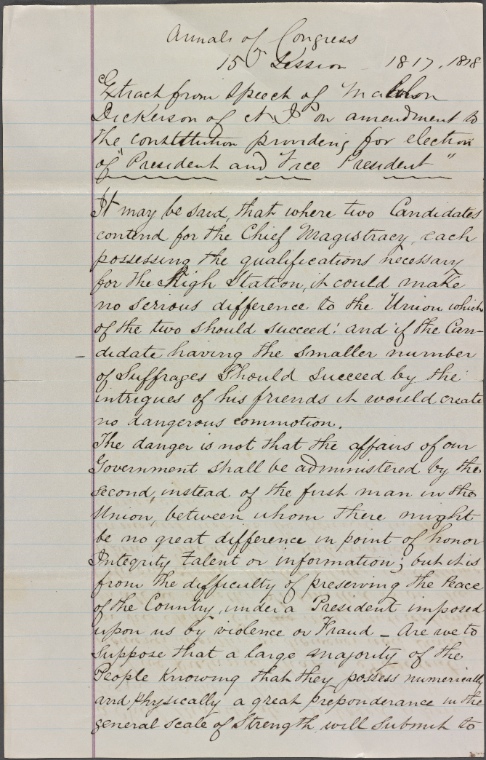 Annals of Congress
15th Session 1817, 1818
Extract from Speech of Mahlon
Dickerson of N J on amendment to
the constitution providing for election
of "President and Vice President"
It may be said, that where two Candidates
contend for the Chief Magistracy, each
possessing the qualifications necessary
for the High Station, it could make
no serious difference to the Union which
of the two should succeed: and if the Can-
didate having the smaller number
of Suffrages Should succeed by the
intrigues of his friends it would create
no dangerous commotion.
The danger is not that the affairs of our
Government shall be administered by the
second, instead of the first man in the
Union, between whom there might
be no great difference in point of honor
Integrity talent or information; but it is
from the difficulty of preserving the Peace
of the Country, under a President imposed
upon us by violence or Fraud - Are we to
Suppose that a large majority of the
People knowing that they possess numerically
and physically a great preponderance in the
general scale of Strength will submit to